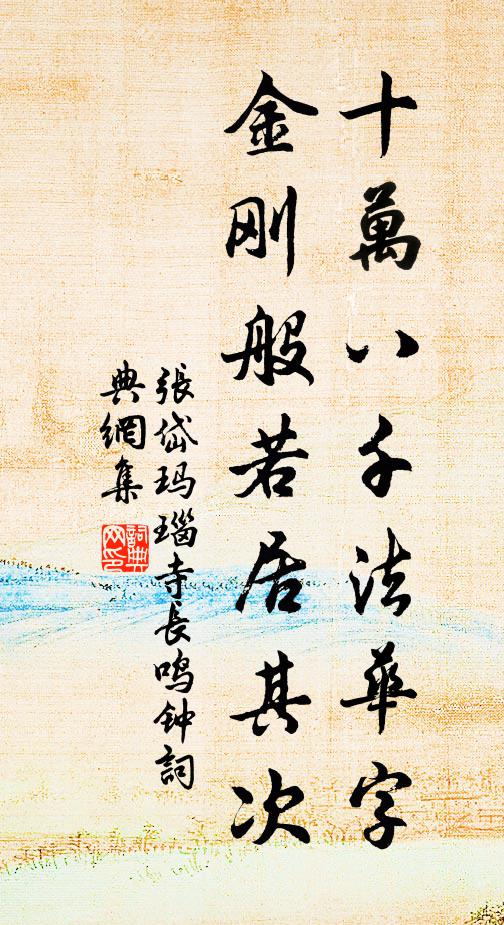 十萬八千法華字
金刚般若居其次
張岱玛瑙寺長鸣钟詞
典網集
詞典
网印